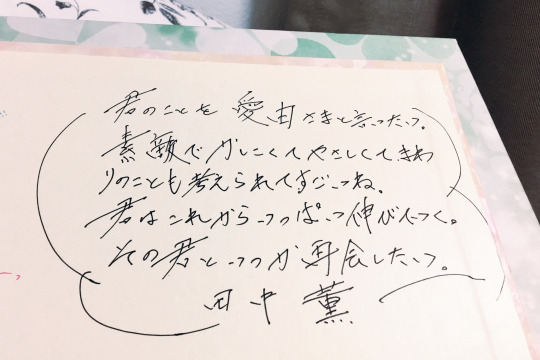 君のことを 愛由さまと言いたい。
素敵でかしこくてやさしくてまわ
りのことも考えられてすごいね。
君はこれからいっぱい伸びていく。
その君といつか再会したい。
田中 薫